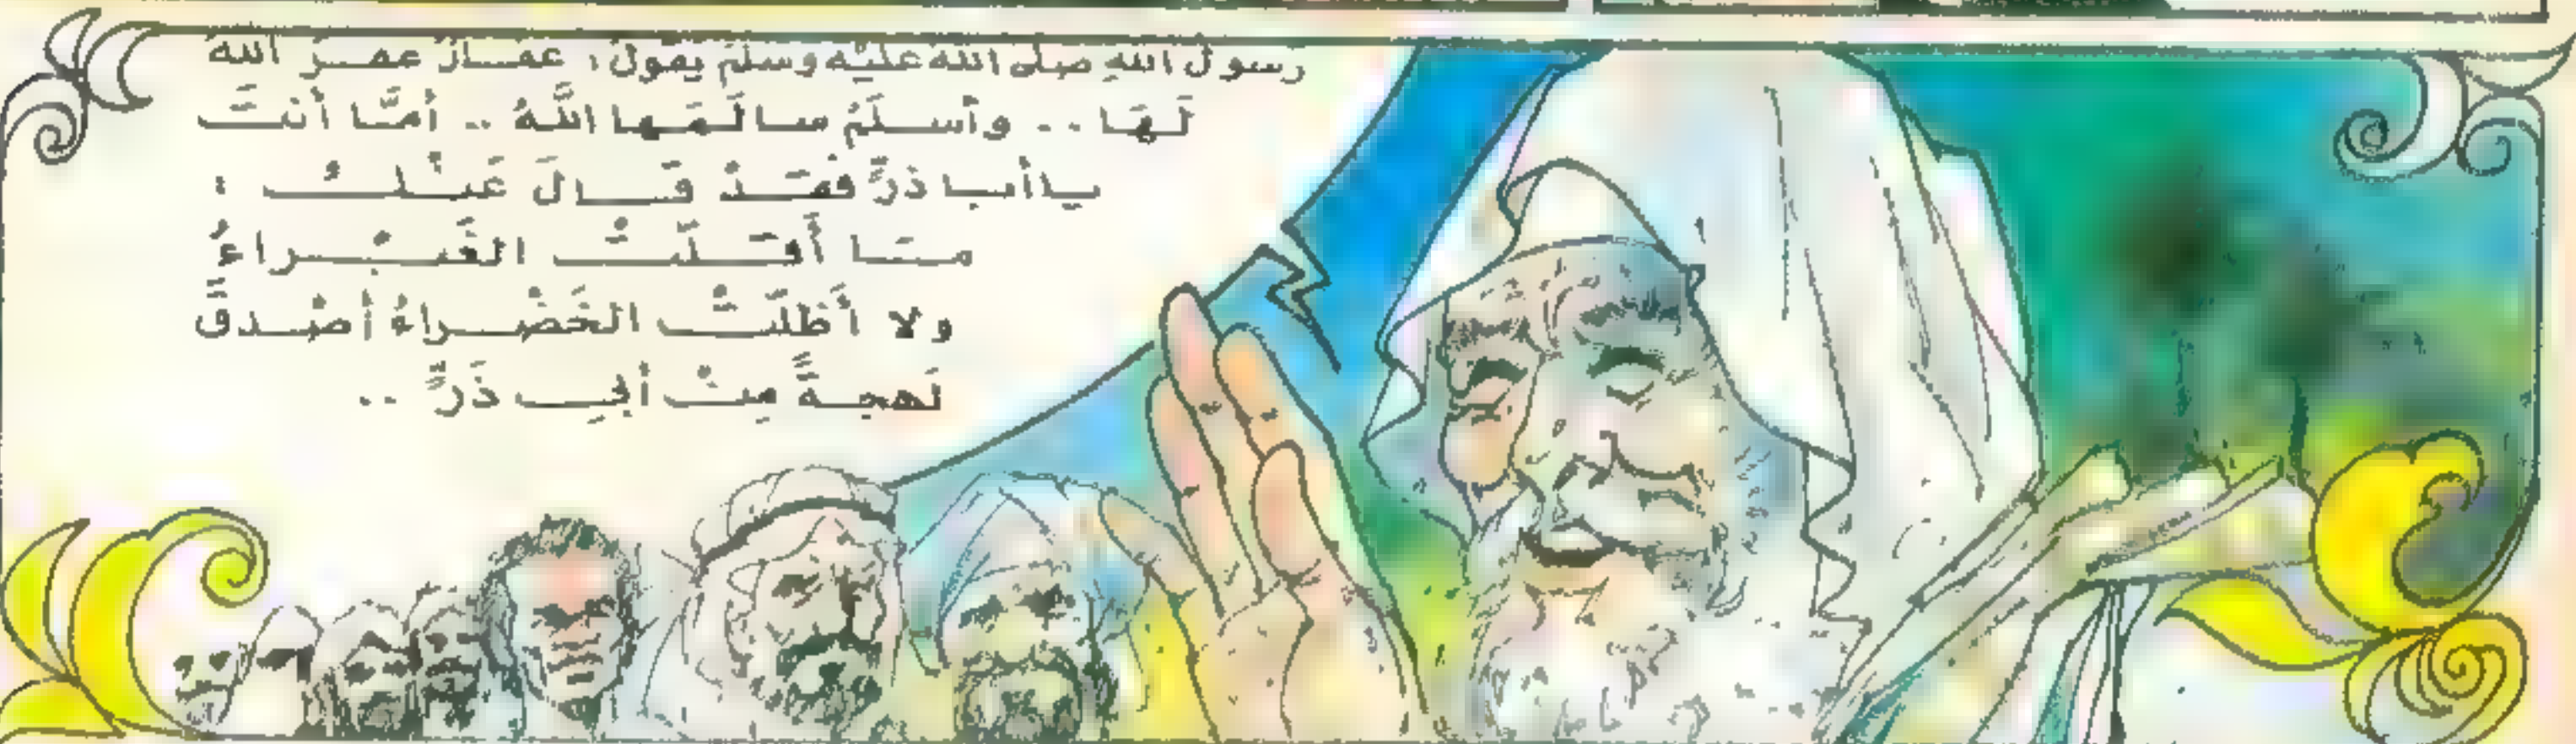 رسول الله صلى الله عليه وسلم يقول : غفار غفر الله
لَهَا .. وأسلَمُ سالَمَها اللَّهُ .. أمَّا أنتَ
يا أبا ذرٍّ فقَدْ قَالَ عَنْكُ :
مَا أَقَلَّتْ الغَبْراءُ
ولا أَظلَّتْ الخَضْراءُ أصْدقَ
لَهجةً مِنْ أبِي ذَرٍّ ..